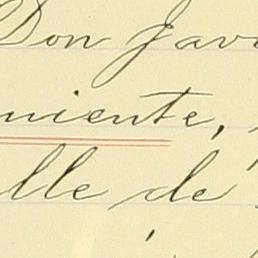 Don Javi
niente,
lle de